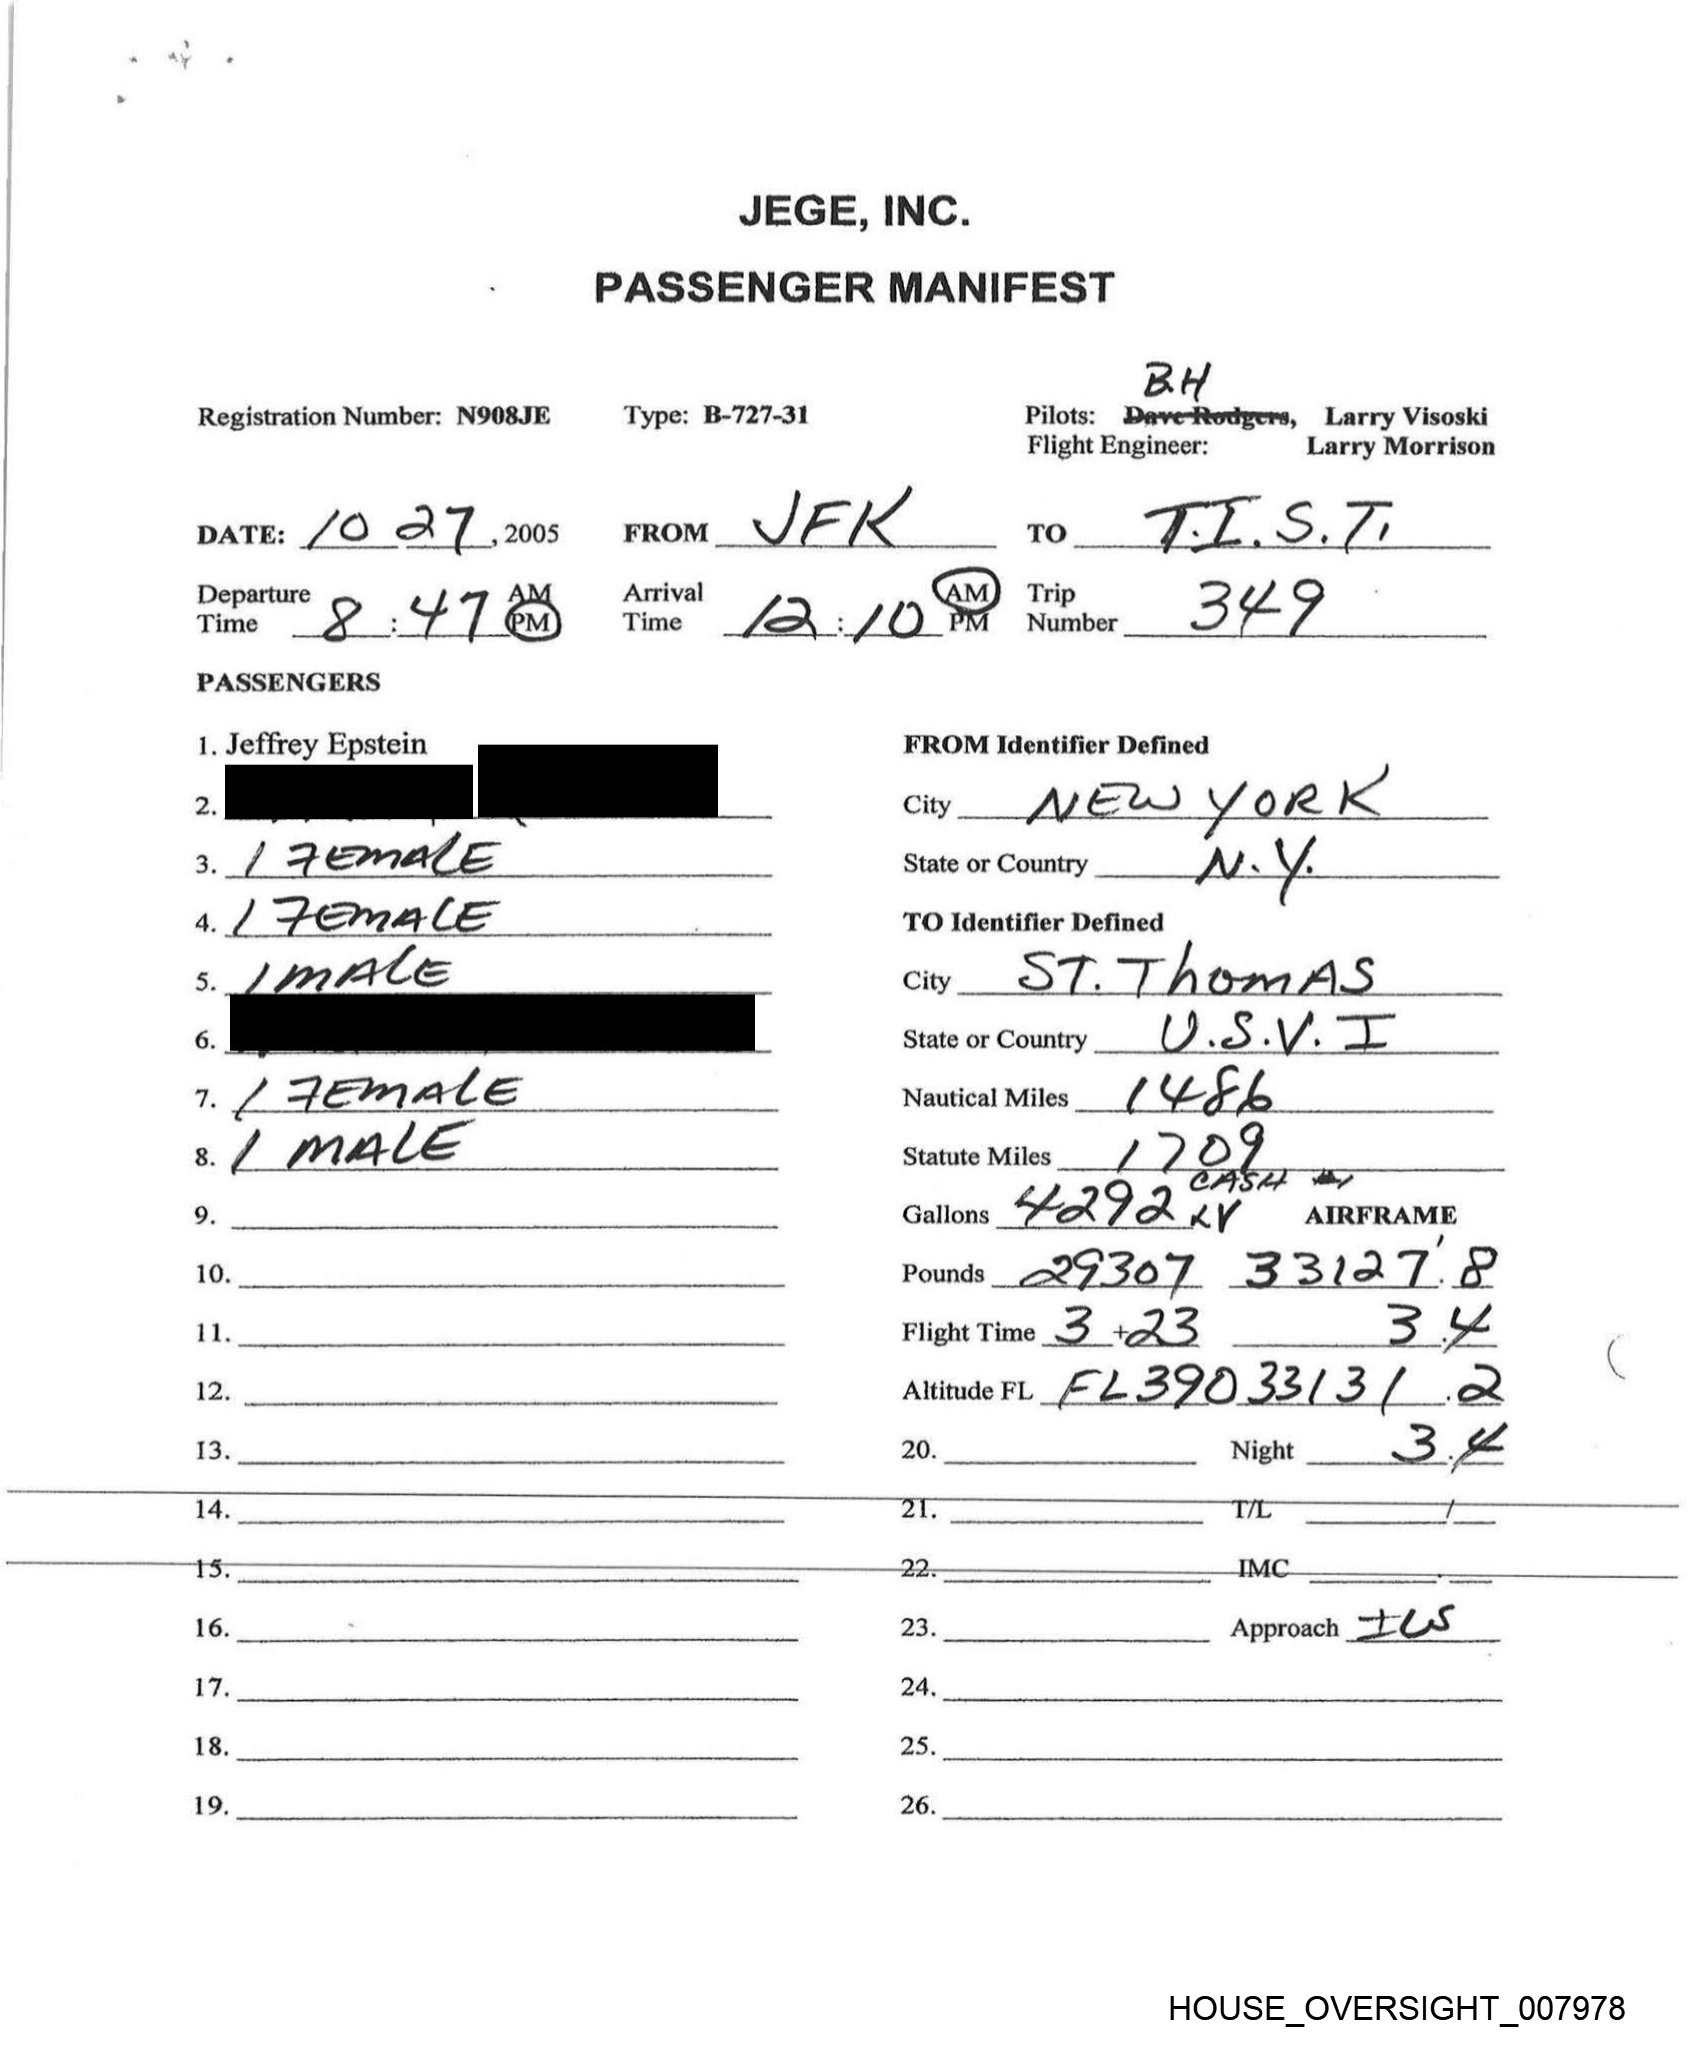 JEGE, INC.
PASSENGER MANIFEST
B.H
Registration Number: N908JE Type: B-727-31 Pilots: Dave Rodgers, Larry Visoski
Flight Engineer: Larry Morrison
DATE: 10 27, 2005 FROM JFK TO T.I.S.T.
Departure Time 8:47 AM PM Arrival Time 12:10 AM PM Trip Number 349
PASSENGERS
1. Jeffrey Epstein FROM Identifier Defined
2. City NEW YORK
3. 1 FEMALE State or Country N.Y.
4. 1 FEMALE TO Identifier Defined
5. 1 MALE City ST. ThomAS
6. State or Country U.S.V.I
7. 1 FEMALE Nautical Miles 1486
8. 1 MALE Statute Miles 1709
CASH
9. Gallons 4292 LV AIRFRAME
10. Pounds 29307 33127.8
11. Flight Time 3+23 3.4
12. Altitude FL FL390 33131.2
13. 20. Night 3.4
14. 21. T/L /
15. 22. IMC .
16. 23. Approach ILS
17. 24.
18. 25.
19. 26.
HOUSE_OVERSIGHT_007978